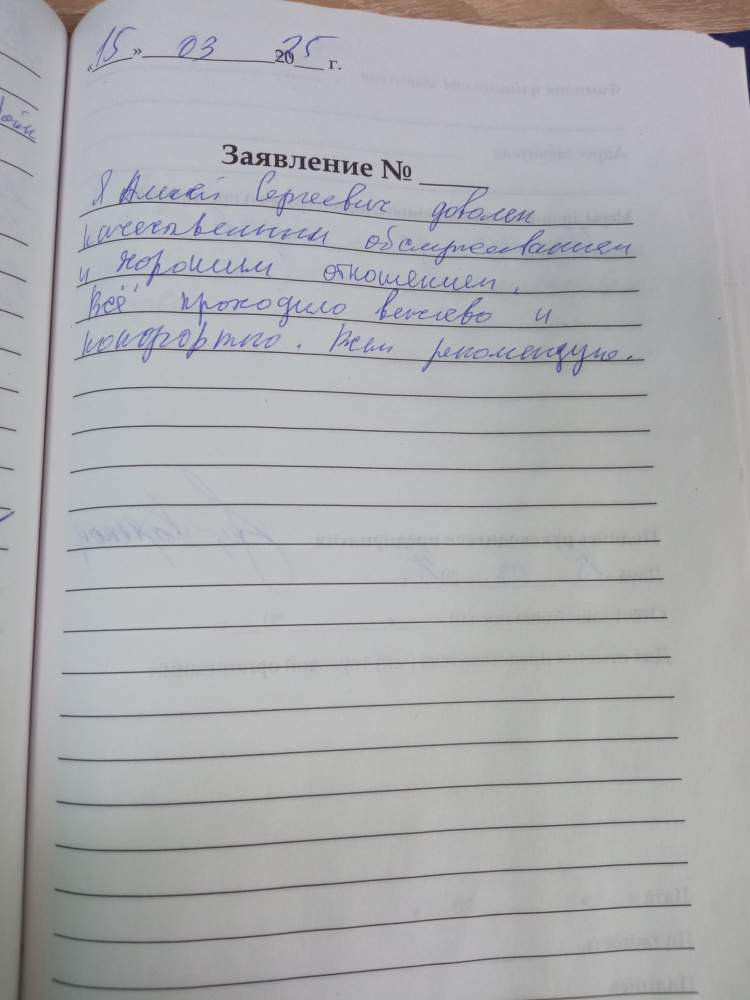 «15» 03 2025 г.
Заявление № ____
Я Алексей Сергеевич доволен
качественным обслуживанием
и хорошим отношением.
Всё проходило вежлево и
комфортно. Всем рекомендую.